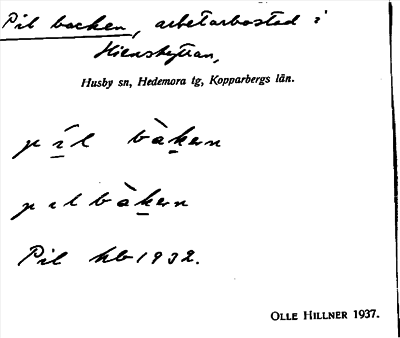 Pil backen, arbetarbostad i
Stiernshyttan,
Husby sn, Hedemora tg, Kopparbergs län.
p í l bàkeṛn
p ı l bàkeṛn
Pil hb 1932.
OLLE HILLNER 1937.